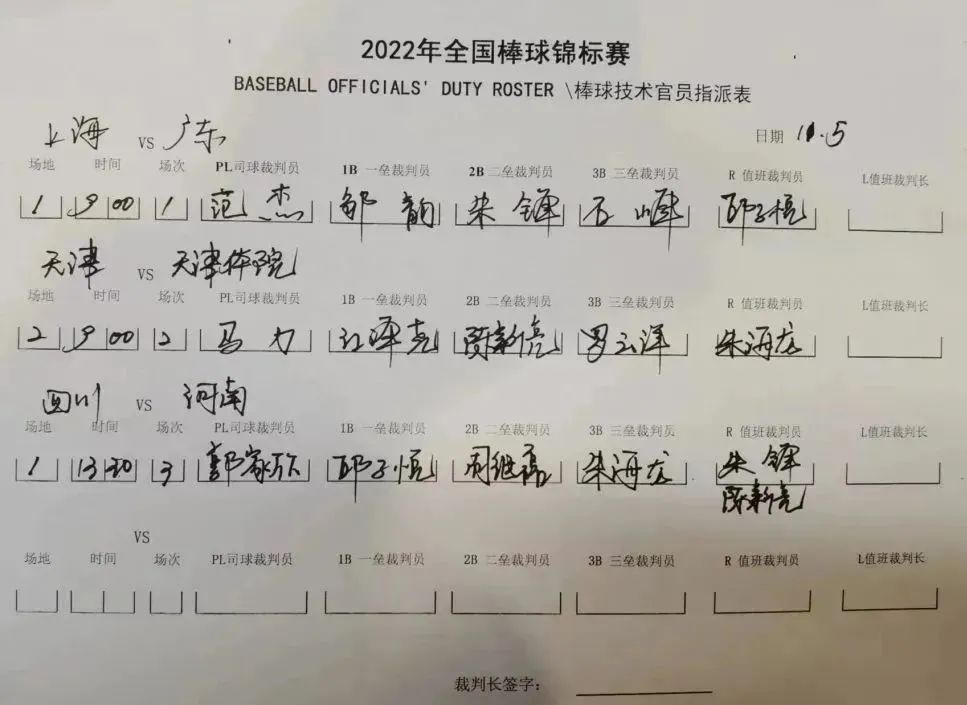 2022年全国棒球锦标赛
BASEBALL OFFICIALS' DUTY ROSTER \棒球技术官员指派表
上海 VS 广东 日期 11.5
场地 时间 场次 PL司球裁判员 1B 一垒裁判员 2B 二垒裁判员 3B 三垒裁判员 R 值班裁判员 L值班裁判长
1 9 00 1 范杰 邹韵 朱铎 石峰
天津 VS 天津体院
场地 时间 场次 PL司球裁判员 1B 一垒裁判员 2B 二垒裁判员 3B 三垒裁判员 R 值班裁判员 L值班裁判长
2 9 00 2 马力 江泽亮 陈新亮 罗云洋 朱海龙
四川 VS 河南
场地 时间 场次 PL司球裁判员 1B 一垒裁判员 2B 二垒裁判员 3B 三垒裁判员 R 值班裁判员 L值班裁判长
1 13 30 3 郭家欣 邱子恒 周继磊 朱海龙 朱铎
陈新亮
VS
场地 时间 场次 PL司球裁判员 1B 一垒裁判员 2B 二垒裁判员 3B 三垒裁判员 R 值班裁判员 L值班裁判长
裁判长签字: